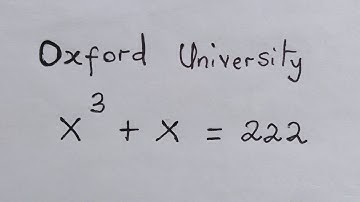 Oxford University
x³ + x = 222